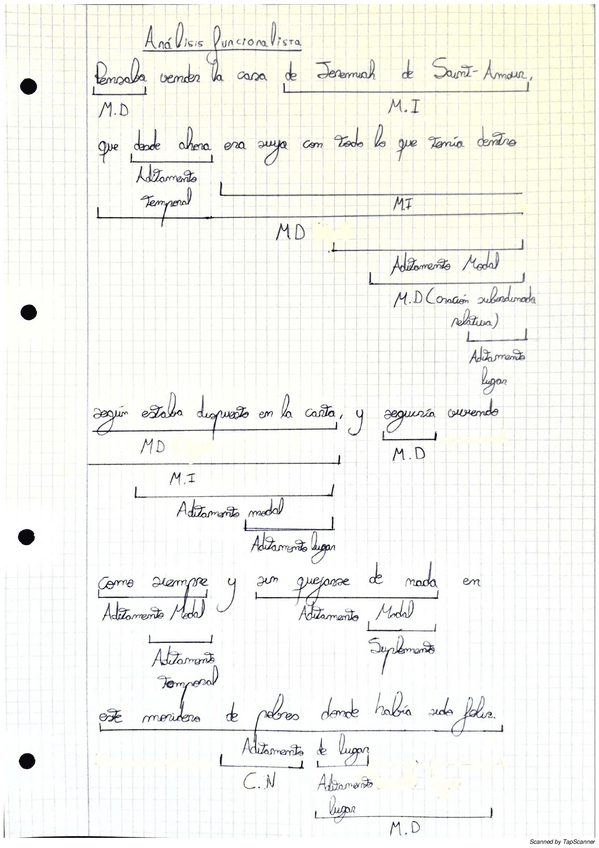 Análisis funcionalista
Pensaba vender la casa de Jeremiah de Saint-Amour,
M.D M.I
que desde ahora era suya con todo lo que tenía dentro
Aditamento
Temporal
MI
MD
Aditamento Modal
M.D (oración subordinada
relativa)
Aditamento
lugar
según estaba dispuesto en la carta, y seguiría viviendo
MD
M.D
M.I
Aditamento modal
Aditamento lugar
como siempre y sin quejarse de nada en
Aditamento Modal Aditamento Modal
Aditamento Suplemento
Temporal
este moridero de pobres donde había sido feliz.
Aditamento de lugar
C.N Aditamento
lugar
M.D
Scanned by TapScanner